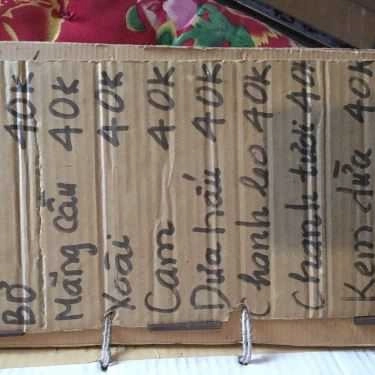 Bơ 40K
Mãng cầu 40K
Xoài 40K
Cam 40K
Dưa hấu 40K
Chanh leo 40K
Chanh tươi 40K
Kem dừa 40K